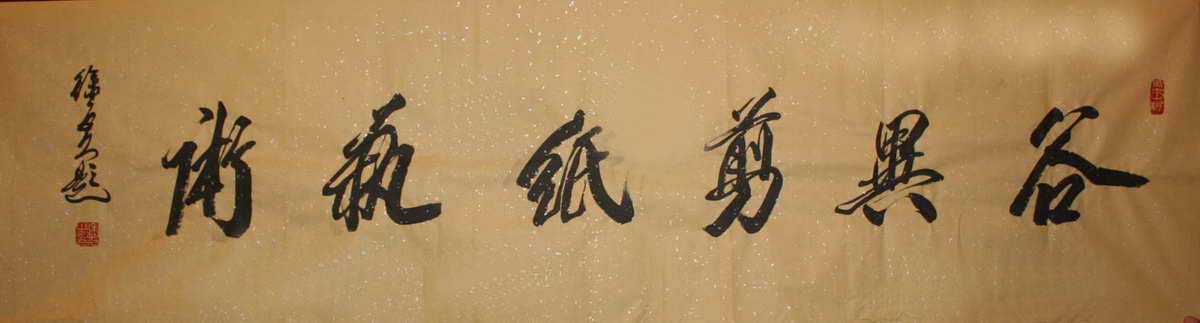 谷異剪紙藝術